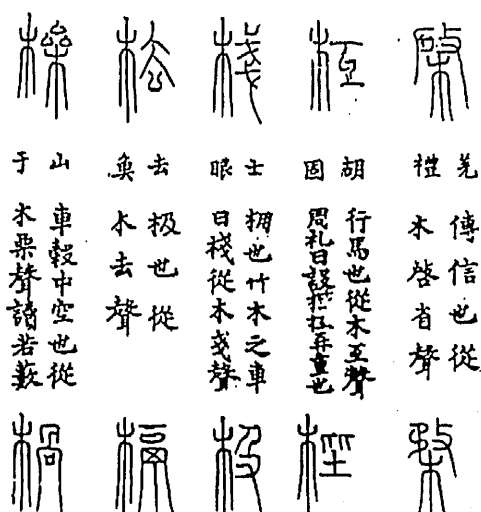 棨
羌禮
傳信也從
木啓省聲
枑
梐
胡固
行馬也從木互聲
周礼曰設梐枑再重也
棧
极
士眼
棚也竹木之車
曰棧從木戔聲
㭕
去
极也從
木去聲
橾
楇
山于
車轂中空也從
木喿聲讀若藪